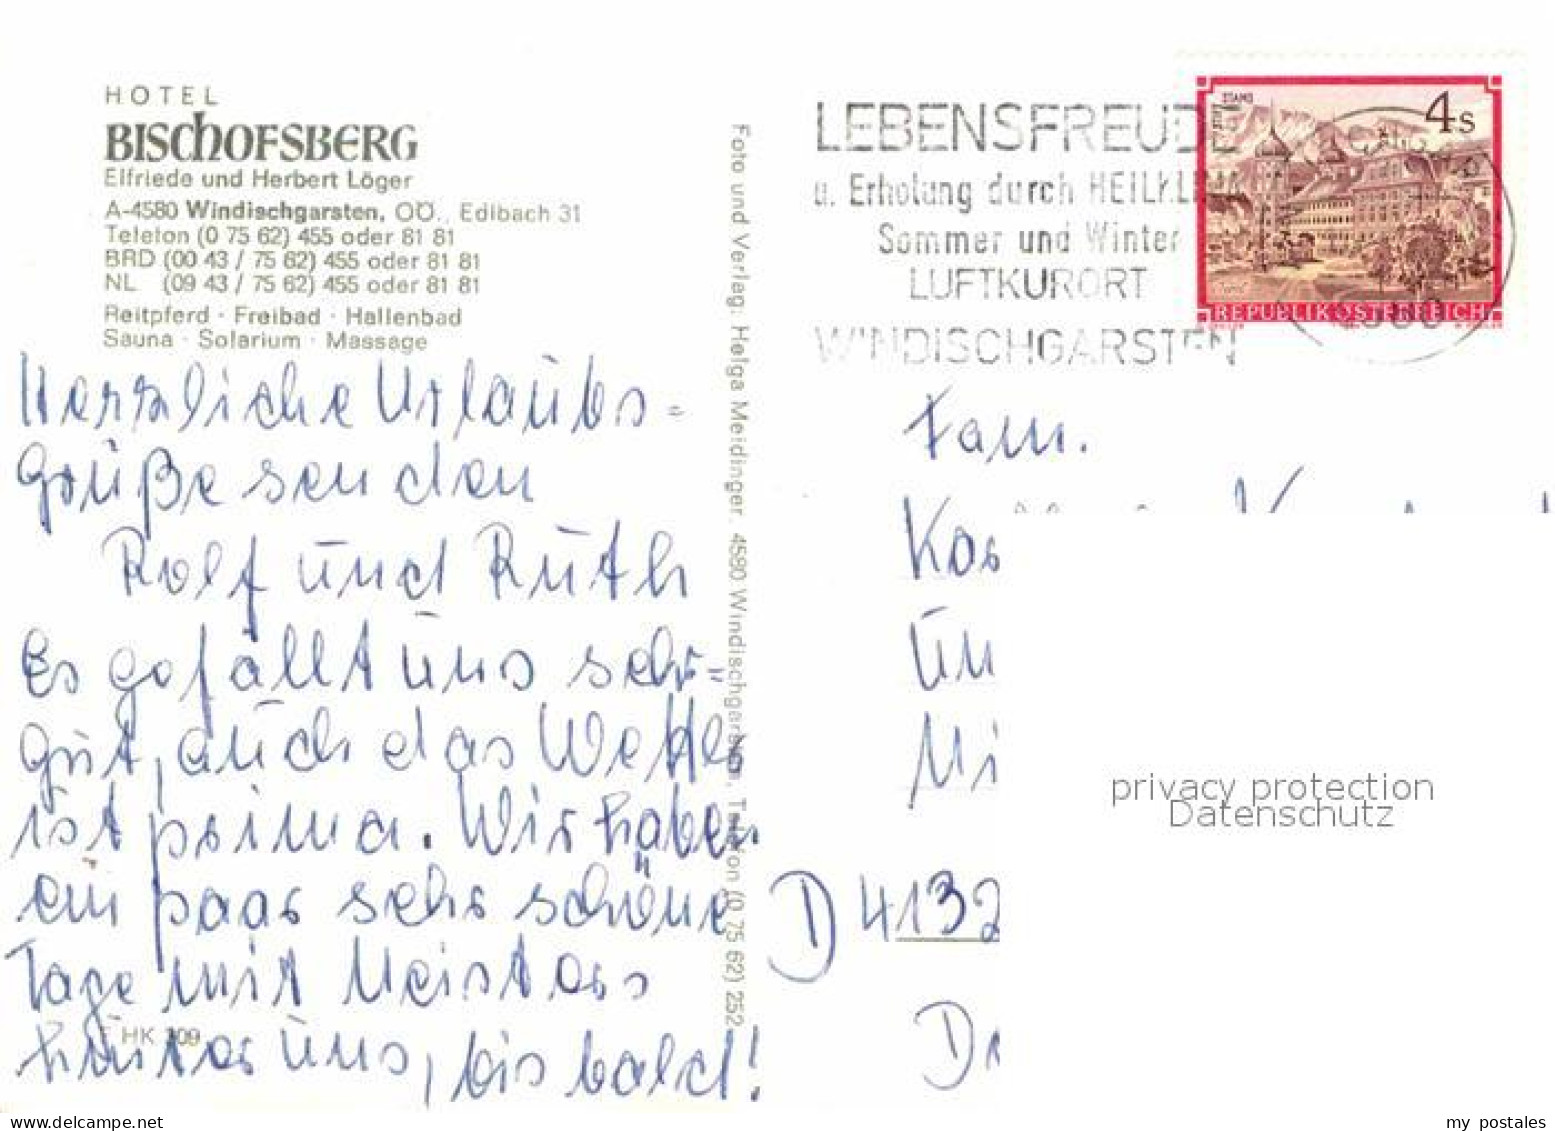 HOTEL
BISCHOFSBERG
Elfriede und Herbert Löger
A-4580 Windischgarsten, OÖ., Edlbach 31
Telefon (0 75 62) 455 oder 81 81
BRD (00 43 / 75 62) 455 oder 81 81
NL (09 43 / 75 62) 455 oder 81 81
Reitpferd · Freibad · Hallenbad
Sauna · Solarium · Massage
Herzliche Urlaubs=
Grüße senden
Rolf und Ruth
Es gefällt uns sehr
gut, auch das Wetter
ist prima. Wir haben
ein paar sehr schöne
Tage mit Meisters
hinter uns, bis bald!
HK 309
Foto und Verlag: Helga Meidinger, 4580 Windischgarsten, Telefon (0 75 62) 252
LEBENSFREUDE
u. Erholung durch HEILKLIMA
Sommer und Winter
LUFTKURORT
WINDISCHGARSTEN
STIFT STAMS
4 S
REPUBLIK ÖSTERREICH
4580
Fam.
Kos
Un
Mi
D 4132
Dr
privacy protection
Datenschutz
my postales